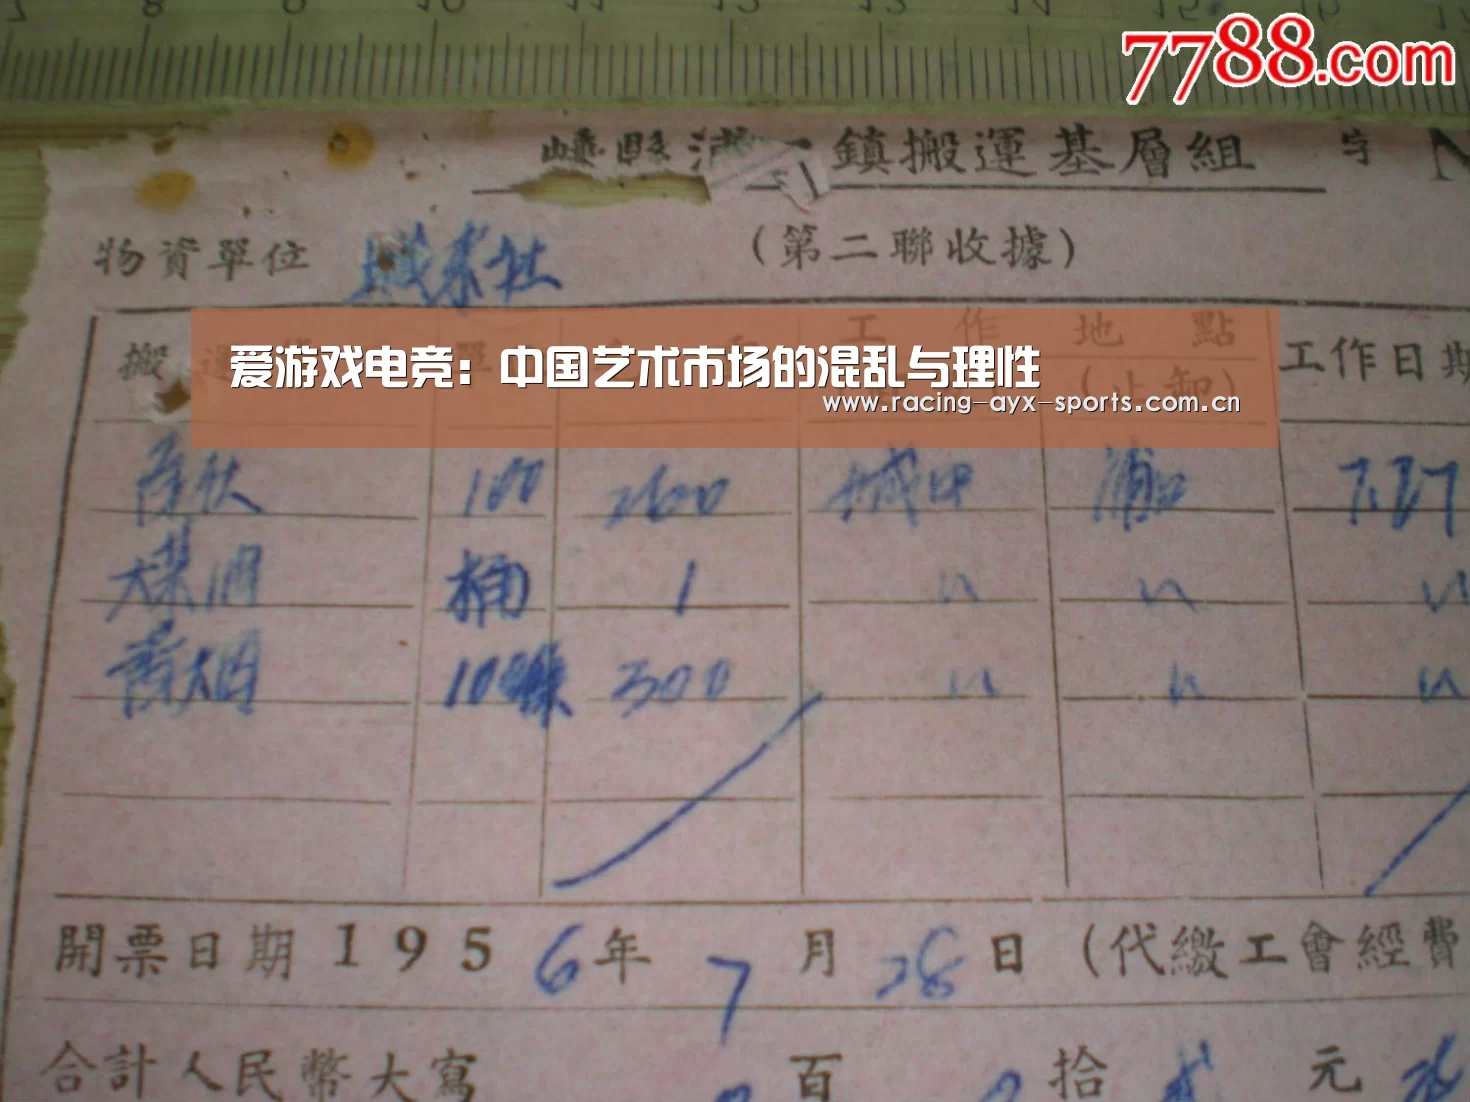 7 8 9 10 11 12 13 14 15 16
7788.com
嵊縣 鎮搬運基層組 字 N
物資單位
(第二聯收據)
工作地點
搬 工作日期
爱游戏电竞：中国艺术市场的混乱与理性
(止卸)
www.racing-ayx-sports.com.cn
100 2600 城中 浦口
桶 1 〃 〃 〃
300 〃 〃 〃
開票日期1956年7月28日(代繳工會經費
合計人民幣大寫 百 拾 元